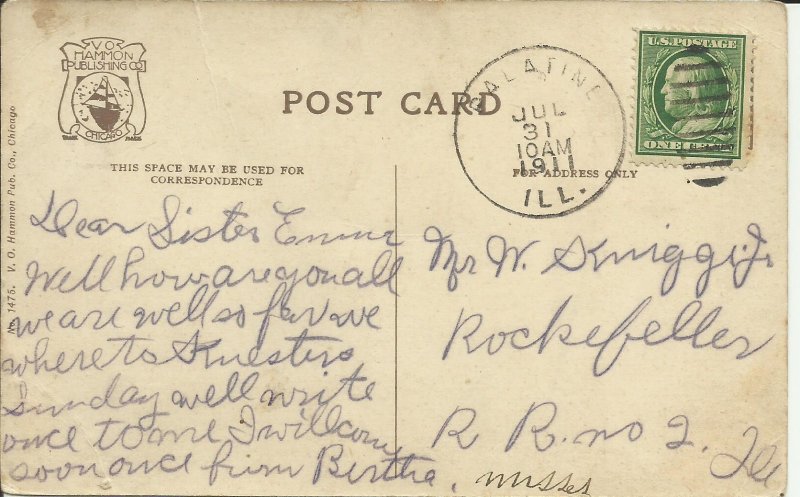 V.O.
HAMMON
PUBLISHING CO
CHICAGO
TRADE MARK
No. 1475. V. O. Hammon Pub. Co., Chicago
POST CARD
PALATINE
JUL
31
10AM
1911
ILL.
U.S. POSTAGE
ONE
THIS SPACE MAY BE USED FOR
CORRESPONDENCE
FOR ADDRESS ONLY
Dear Sister Emma
Well how are you all
we are well so far we
where to
Sunday well write
once to me I will
soon once from Bertha.
Mr W. Jr
Rockefeller
R R. no 2. Ill
misses